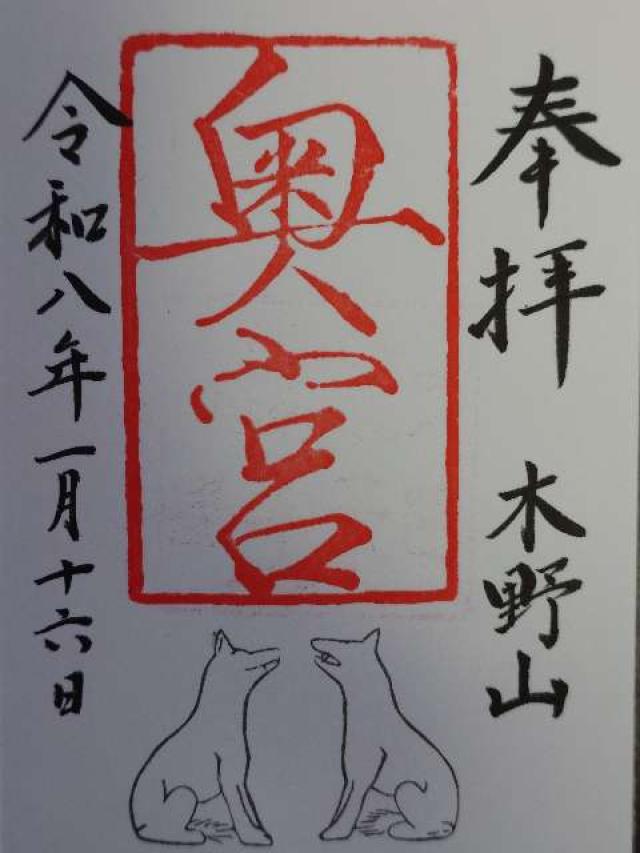 奉拝 木野山
奥宮
令和八年一月十六日